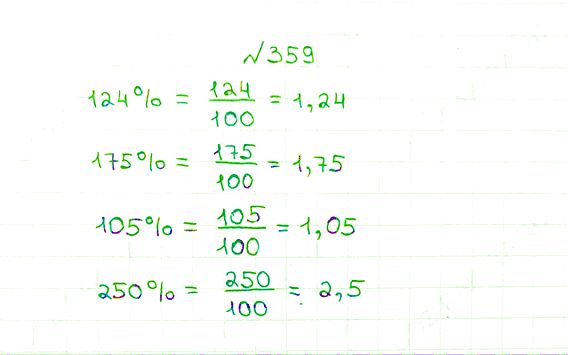 №359
124% = 124/100 = 1,24
175% = 175/100 = 1,75
105% = 105/100 = 1,05
250% = 250/100 = 2,5